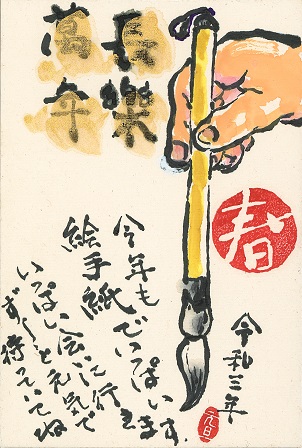 長樂
萬年
春
令和三年
元旦
今年も
絵手紙でいっぱい
いっぱい会いに行きます。
ずーっと元気で
待っていてね